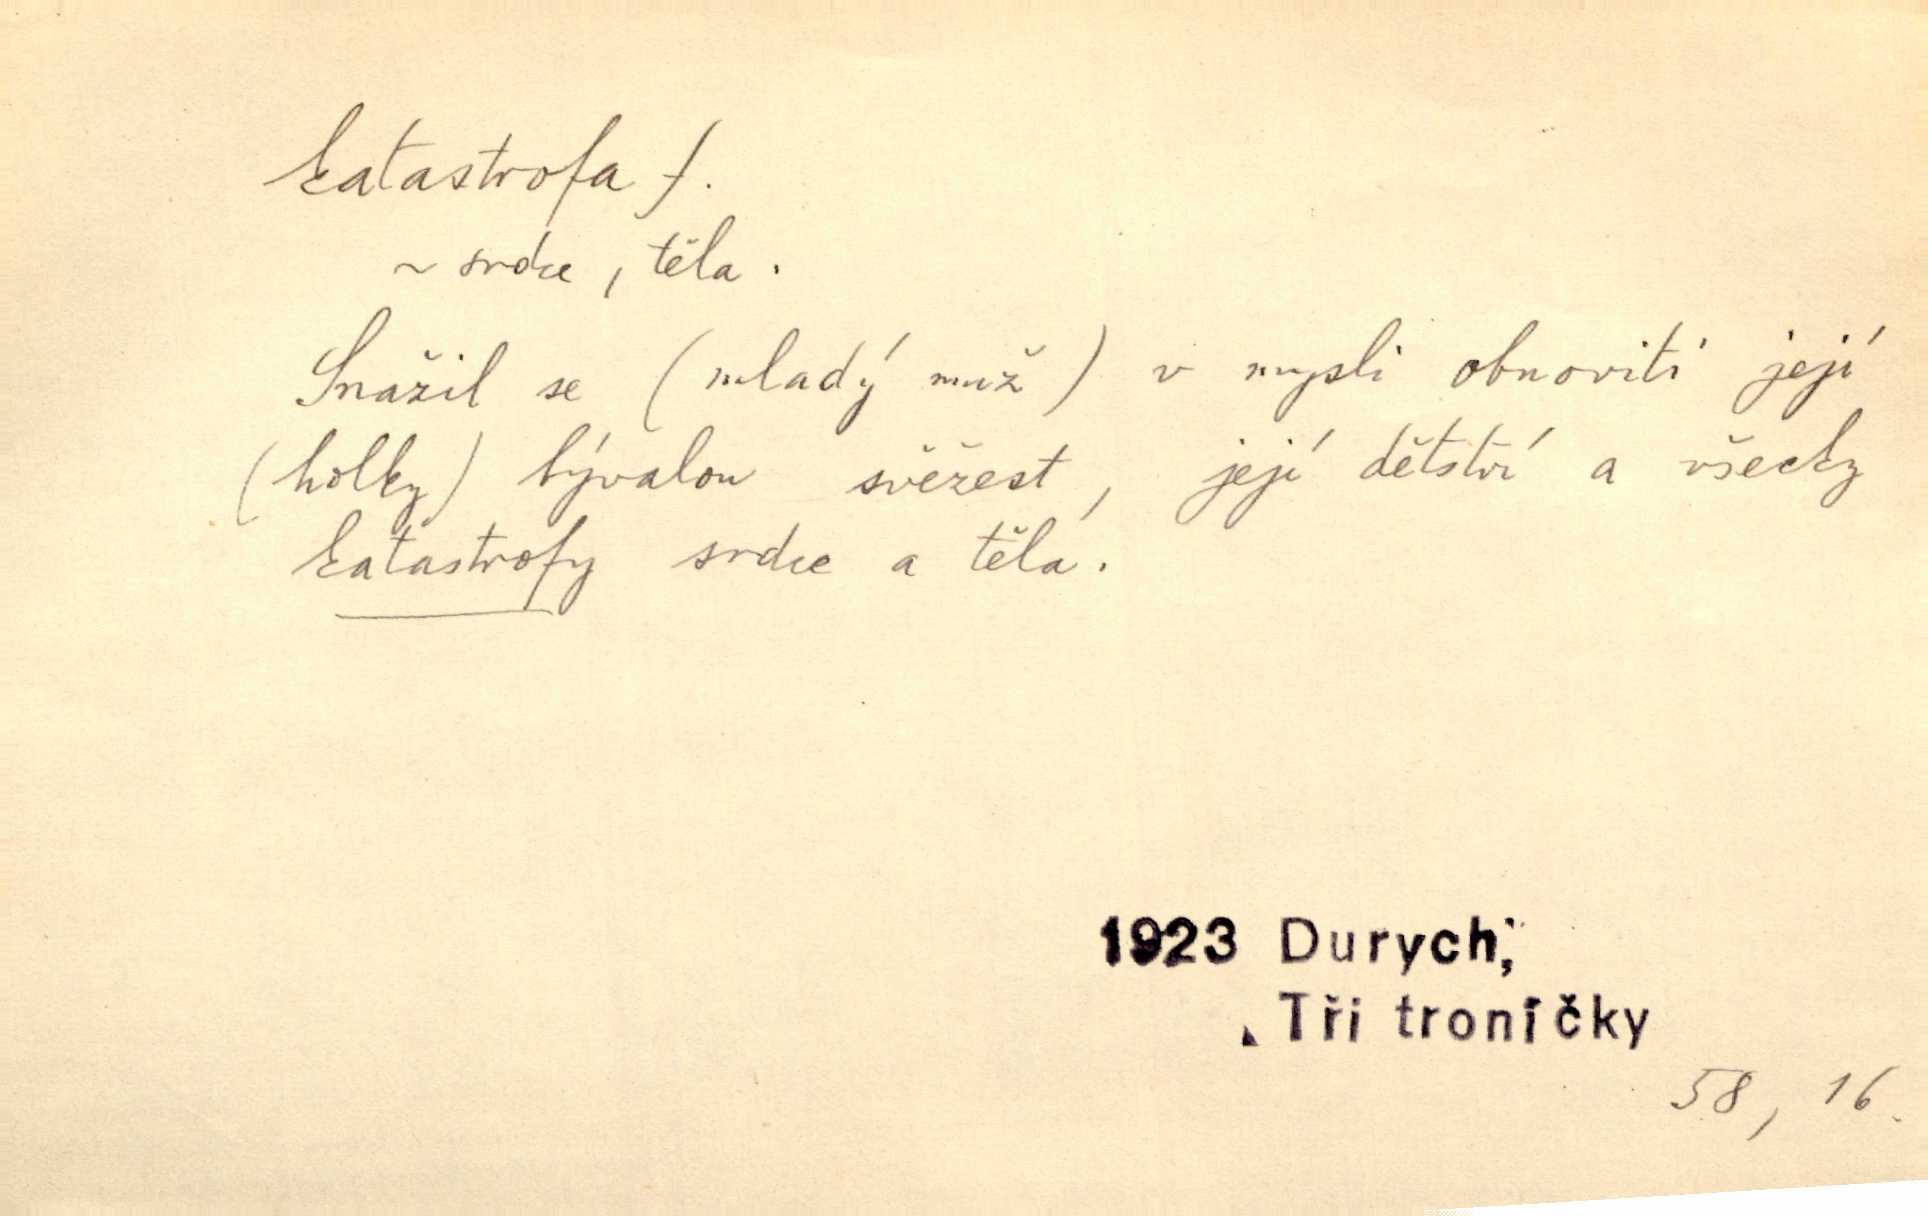 katastrofa f.
~ srdce, těla.
Snažil se (mladý muž) v mysli obnoviti její
(holky) bývalou svěžest, její dětství a všecky
katastrofy srdce a těla.
1923 Durych,
Tři troníčky
58, 16.